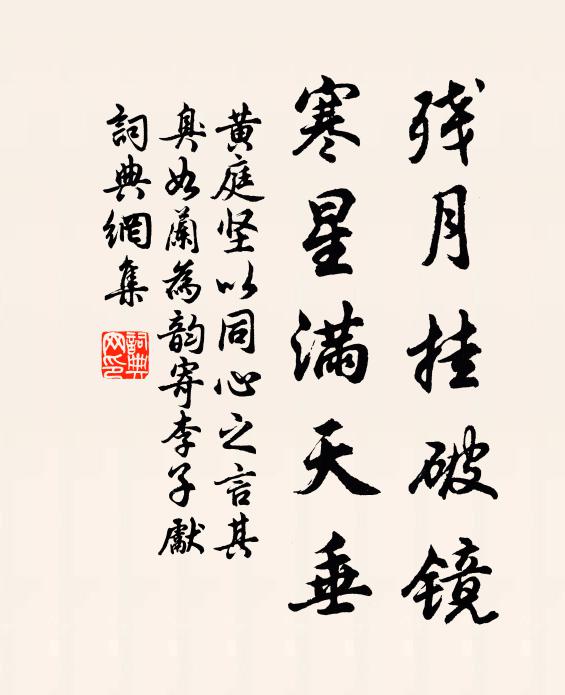 残月挂破镜
寒星满天垂
黄庭坚以同心之言其
臭如蘭為韵寄李子獻
詞典網集
詞典
网印